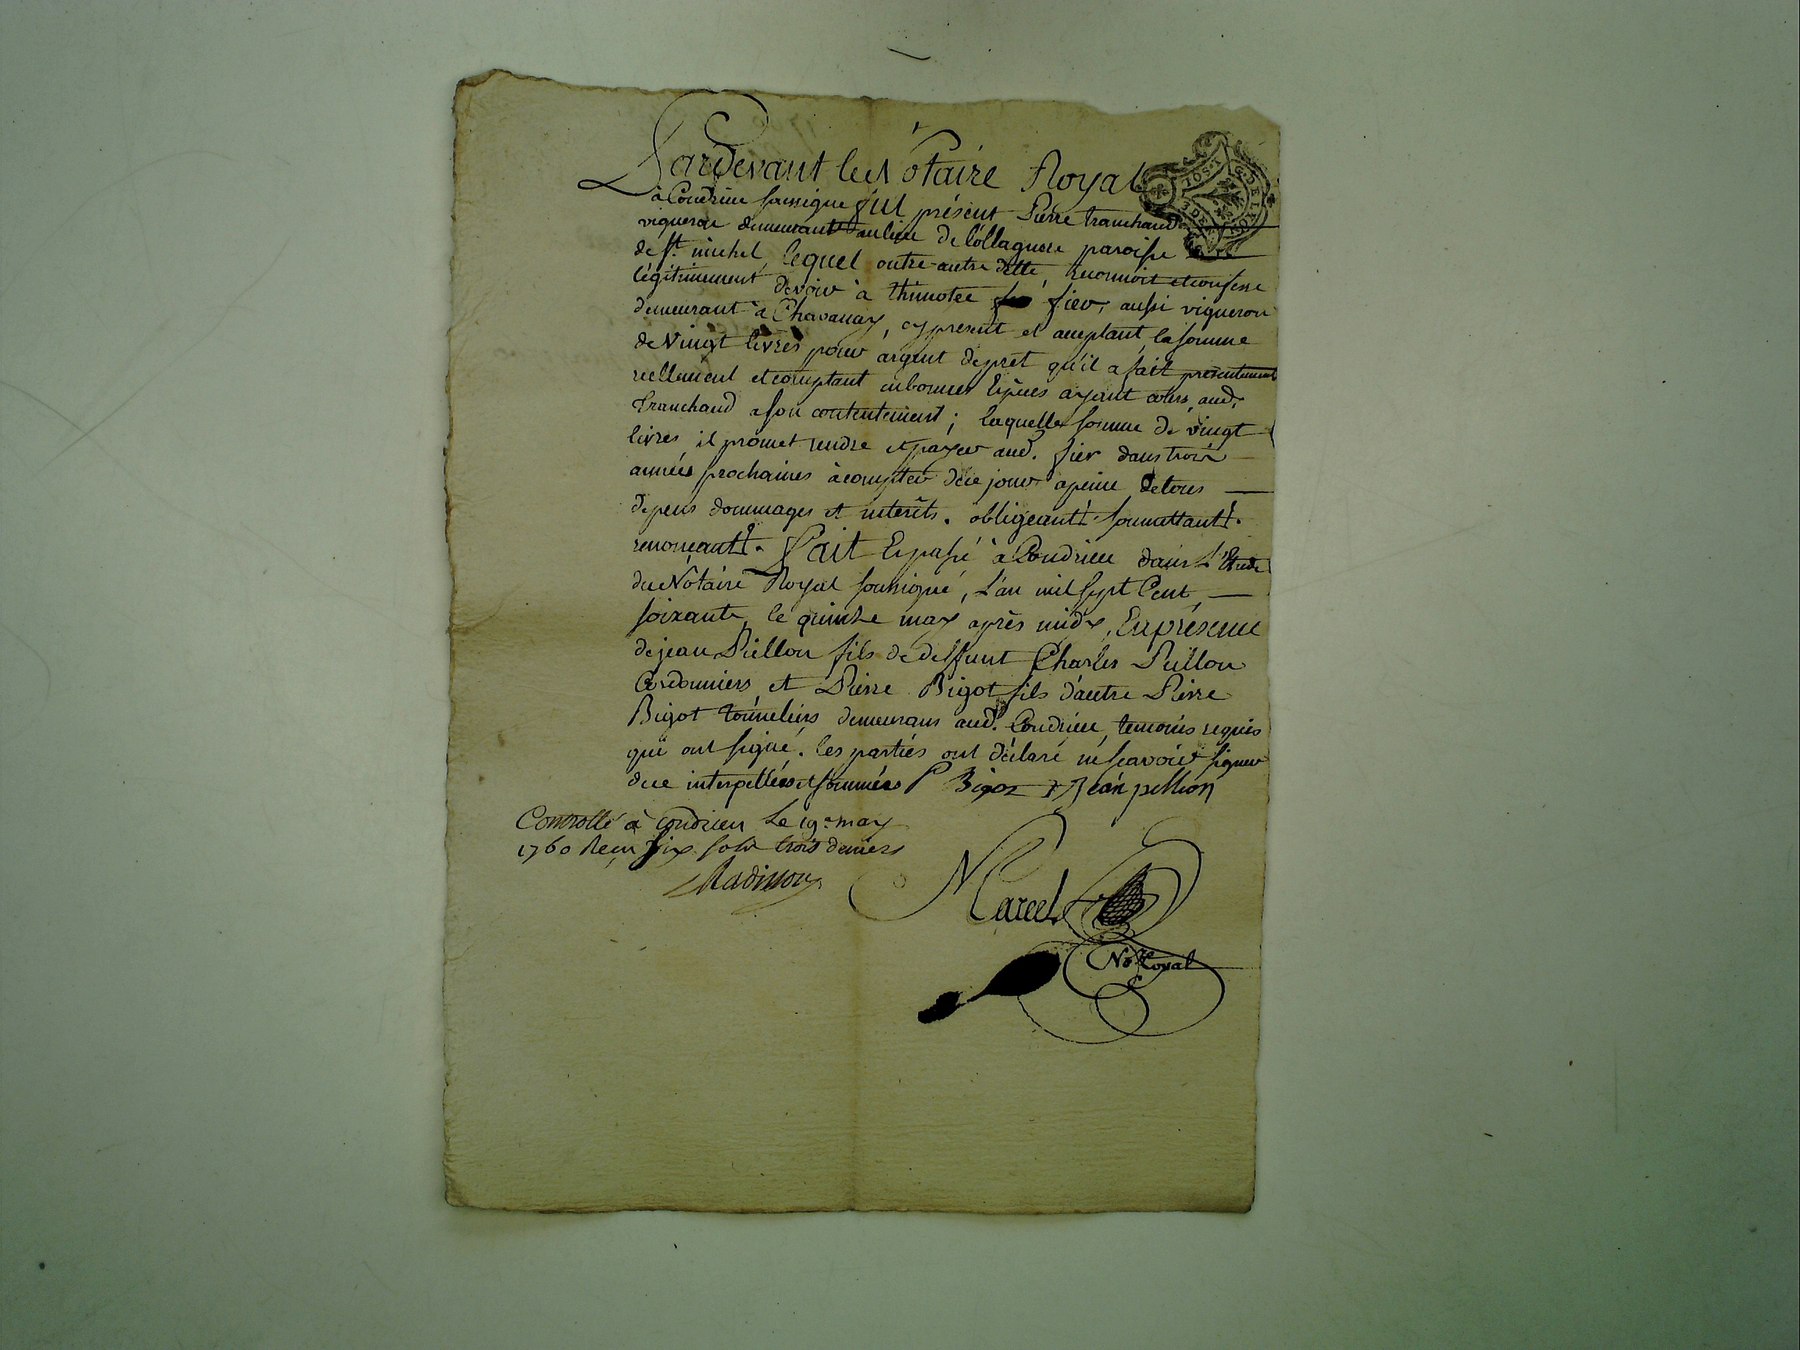 Pardevant le Nôtaire Royal
à Condrieu soussigné fut présent Pierre tranchand
vigneron demeurant au lieu de Collagnere paroisse
de St. michel, lequel outre autre dette reconnoit et confesse
légitimement devoir à thimotée fier, aussi vigneron
demeurant à Chavanay, cy present et acceptant, la somme
de vingt livres pour argent de prêt qu'il a fait presentement
reellement et comptant en bonnes Espèces ayant cours, aud.
tranchand a son contentement; laquelle somme de vingt
livres il promet rendre et payer aud. fier dans trois
années prochaines à compter de ce jour a peine de tous
depens dommages et interêts. obligeant. soumettant.
renonceant. Fait Et passé à Condrieu dans L'Etude
du Nôtaire Royal soussigné, L'an mil sept Cent
soixante, le quinze may après midy, En présence
de jean Pellion fils de deffunt Charles Pellion
Cordonniers, et Pierre Bigot fils d'autre Pierre
Bigot tonneliers demeurans aud. Condrieu, temoins requis
qui ont signé. les parties ont déclaré ne scavoir signer
de ce interpellées et sommées P Bigot Jean pellion
Controllé à Condrieu Le 19e may
1760 Reçu six sols trois deniers
Madinon
Marcel
Nore Royal